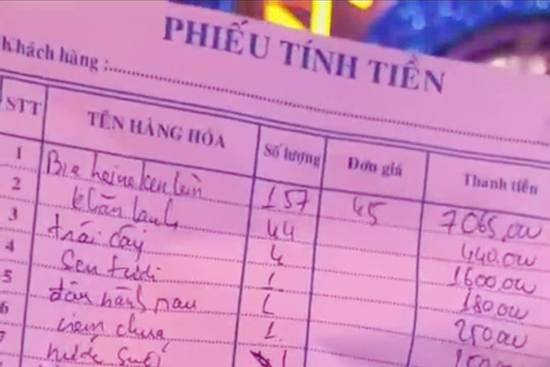 PHIẾU TÍNH TIỀN
Khách hàng :
STT TÊN HÀNG HÓA Số lượng Đơn giá Thanh tiền
1 Bia heineken lùn 157 45 7065,000
2 khăn lạnh 44 440.000
3 trái cây 4 1600.000
4 1 180.000
5 đậu 1 250.000
6 chua 1.
7 1